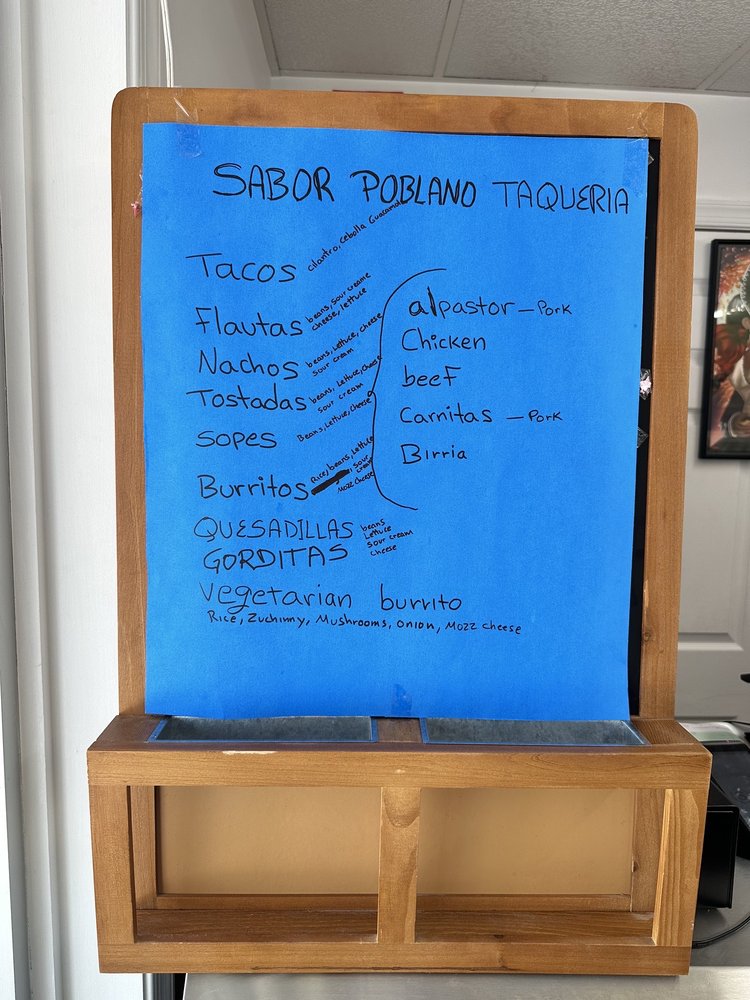 SABOR POBLANO TAQUERIA
Tacos cilantro, cebolla Guacamole
Flautas beans, sour creame
cheese, lettuce
Nachos beans, lettuce, cheese
sour cream
Tostadas beans, lettuce, cheese
sour cream
SOPES Beans, lettuce, cheese
Burritos Rice, beans, lettuce
sour
cream
Mozz cheese
QUESADILLAS beans
Lettuce
sour cream
cheese
GORDITAS
vegetarian burrito
Rice, Zuchinny, Mushrooms, onion, Mozz cheese
alpastor - Pork
Chicken
beeF
Carnitas - Pork
Birria